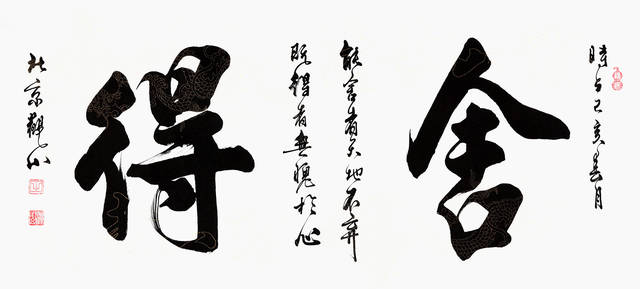 時于己亥春月
舍
能舍者天地不弃
既得者無愧於心
得
北京